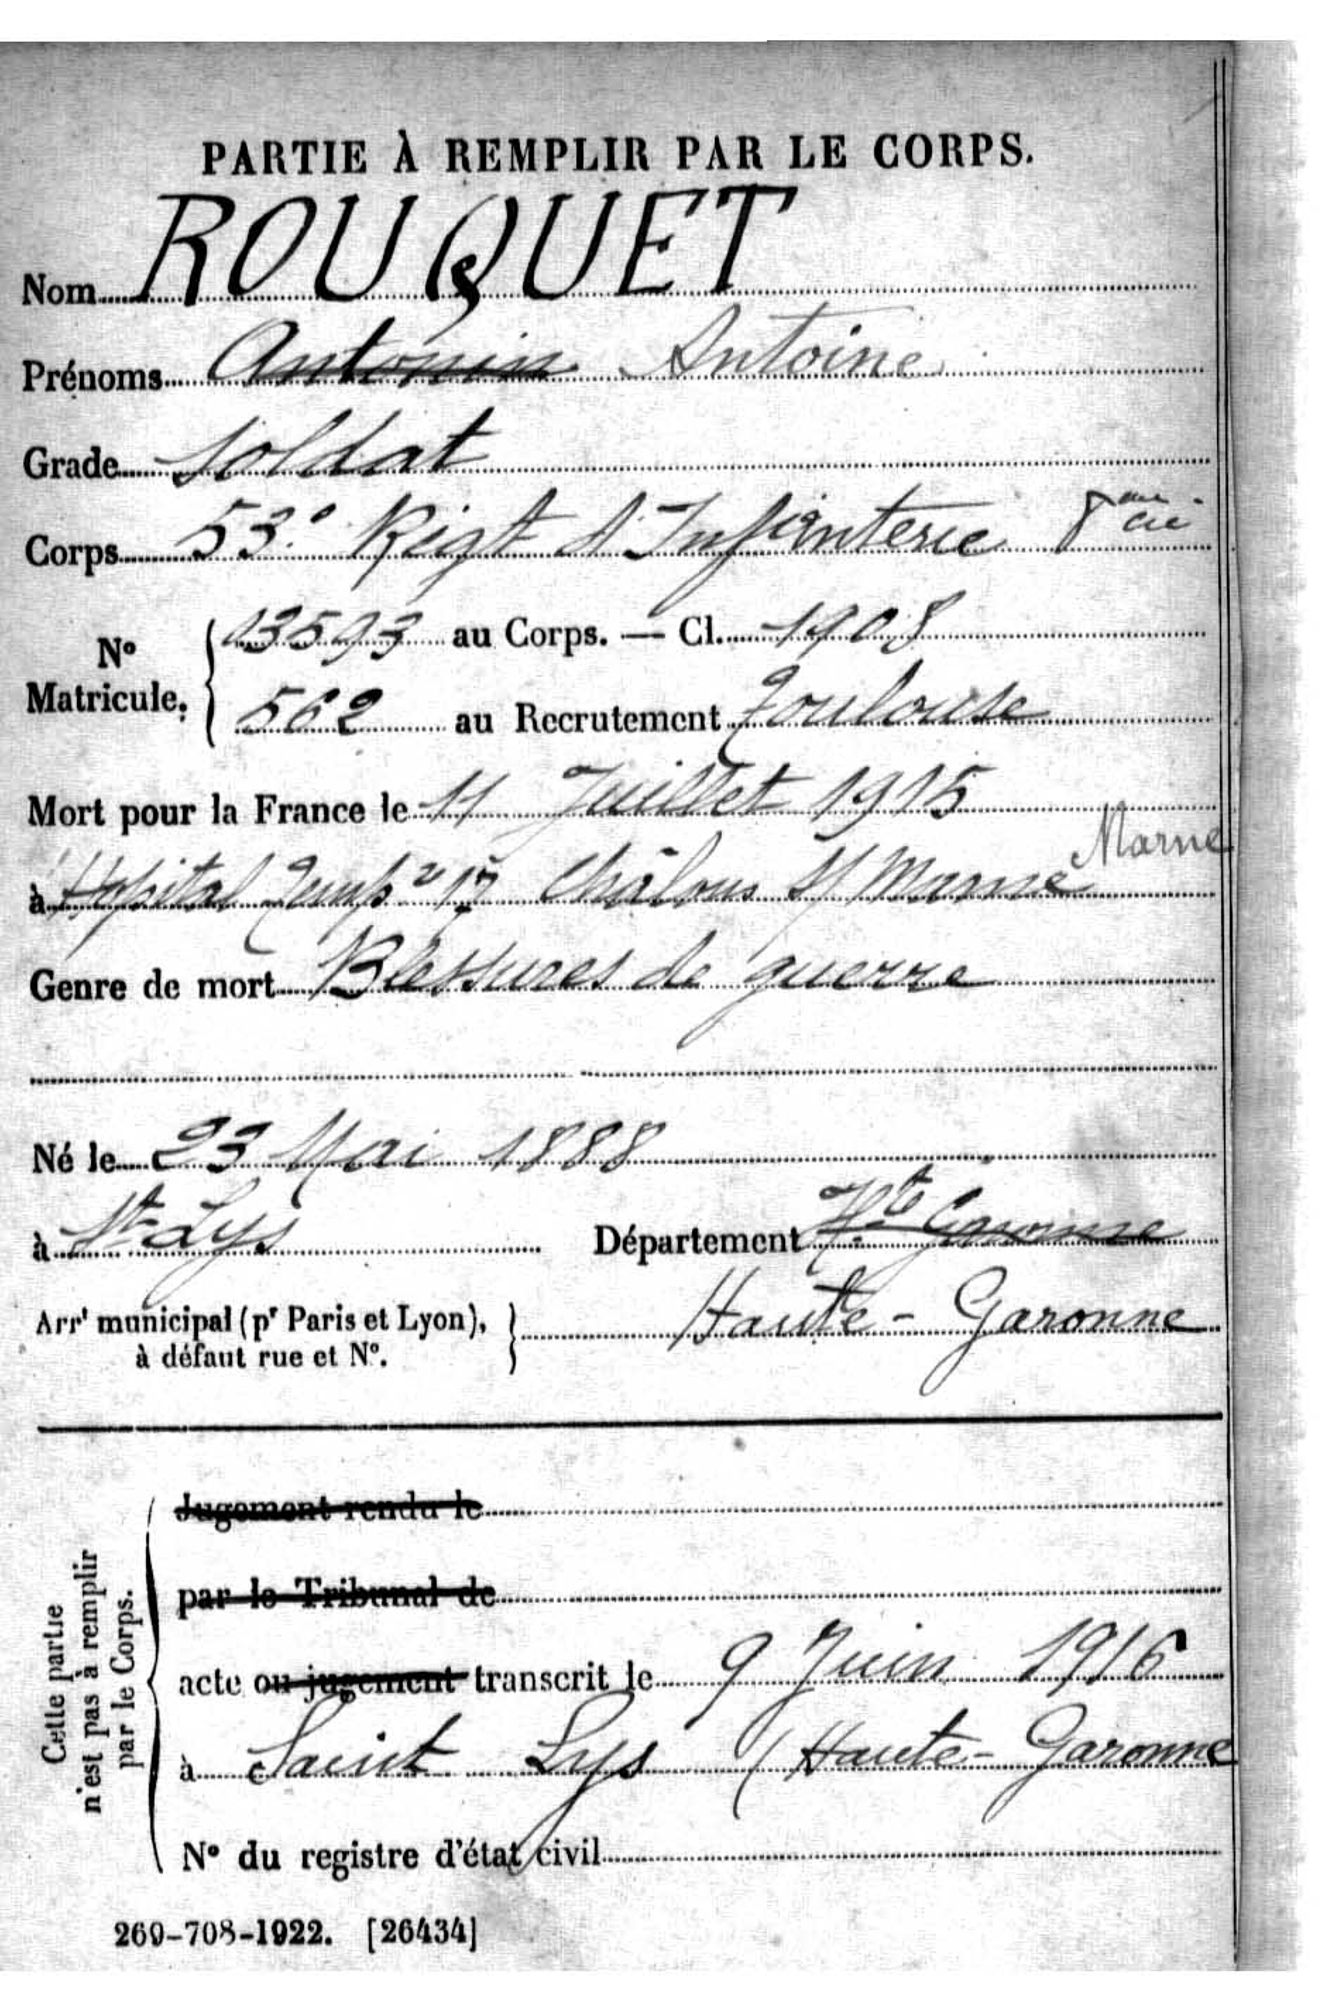 PARTIE À REMPLIR PAR LE CORPS.
Nom ROUQUET
Prénoms Antonin Antoine
Grade Soldat
Corps 53e Rigt d'Infanterie 8me Cie
No Matricule. { 13593 au Corps. — Cl. 1908
562 au Recrutement Toulouse
Mort pour la France le 11 Juillet 1915
à Hôpital Temp 17 Châlons s/ Marne Marne
Genre de mort Blessures de guerre
Né le 23 Mai 1888
à St Lys Département Hte Garonne
Arrt municipal (pr Paris et Lyon), à défaut rue et No. } Haute-Garonne
Cette partie n'est pas à remplir par le Corps.
Jugement rendu le
par le Tribunal de
acte ou jugement transcrit le 9 Juin 1916
à Saint Lys (Haute-Garonne
No du registre d'état civil
269-708-1922. [26434]